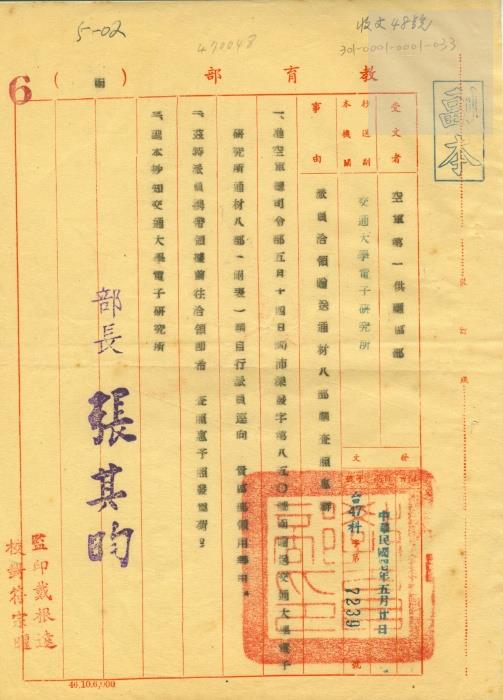 5-02
470048
收文48號
301-0001-0001-033
教育部
(函)
6
副本
受文者
空軍第一供應區部
抄送副本機關
交通大學電子研究所
事由
派員洽領贈送通材八部請查照惠辦
發文
中華民國47年五月廿日
台47科字第7239號
一、准空軍總司令部五月十四日
字第八五〇號函贈送交通大學電子
研究所通材八部(附表)請自行派員逕向 貴區部領用
二、茲特派員携帶領據前往洽領即希 查照惠予照發
三、副本抄知交通大學電子研究所
部長 張其昀
監印戴根遠
校對符宗
裝訂線
46.10.6,000